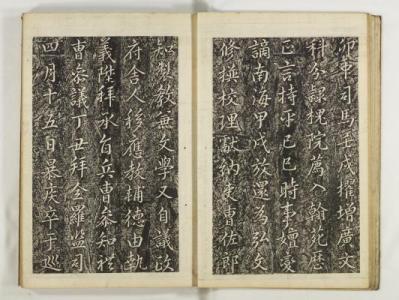 卯中司馬壬戌擢增廣文
科分隸槐院薦入翰苑歷
正言持平己巳時事嬗憂
謫南海甲戌放還為弘文
修撰校理獻納吏曹佐郎
知製教兼文學又自議政
府舍人移應教輔德由執
義陞拜承旨兵曹參知禮
曹參議丁丑拜全羅監司
四月十五日暴疾卒于巡